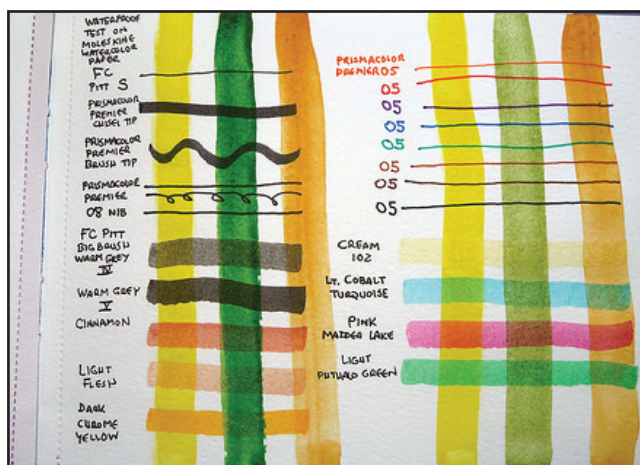 WATERPROOF
TEST ON
MOLESKINE
WATERCOLOR
PAPER
FC
PITT S
PRISMACOLOR
PREMIER
CHISEL TIP
PRISMACOLOR
PREMIER
BRUSH TIP
PRISMACOLOR
PREMIER
08 NIB
FC PITT
BIG BRUSH
WARM GREY
IV
WARM GREY
V
CINNAMON
LIGHT
FLESH
DARK
CHROME
YELLOW
PRISMACOLOR
PREMIER 05
05
05
05
05
05
05
05
CREAM
102
LT. COBALT
TURQUOISE
PINK
MADDER LAKE
LIGHT
PHTHALO GREEN